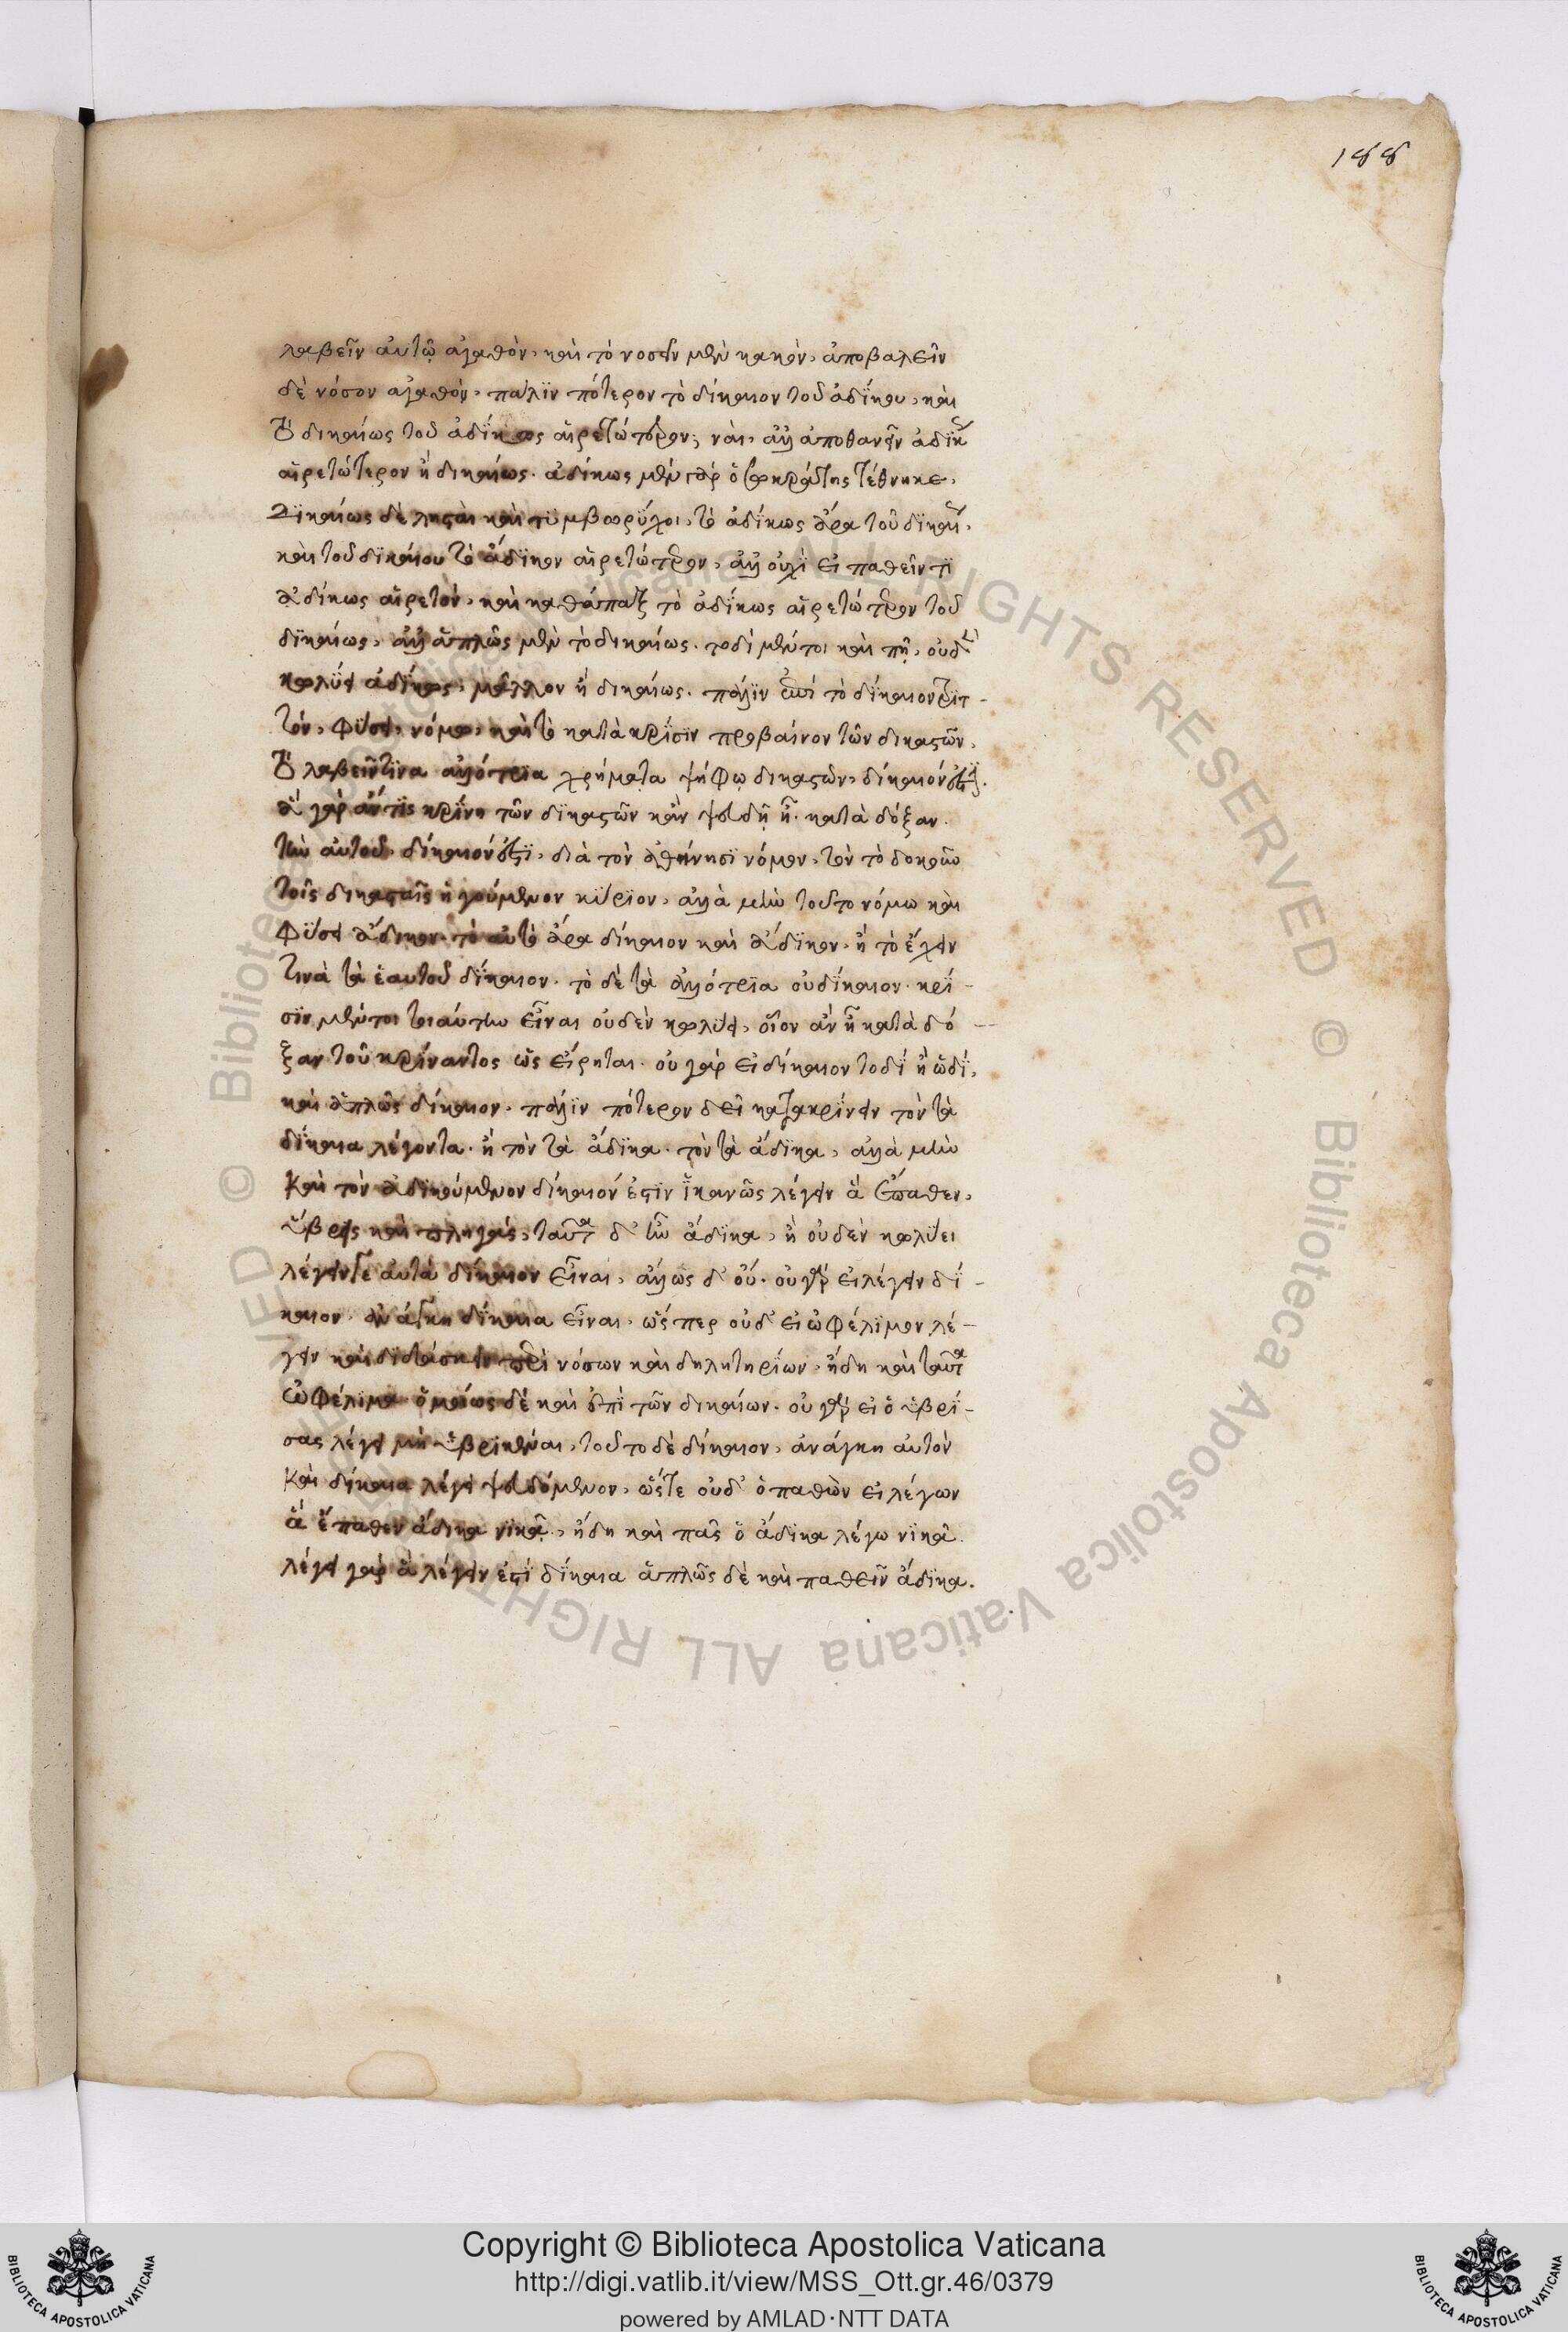 188
λαβεῖν αὐτῷ ἀγαθὸν, καὶ τὸ νοσεῖν μὲν κακὸν, ἀποβαλεῖν
δὲ νόσον ἀγαθόν. πάλϊν πότερον τὸ δίκαιον τοῦ ἀδίκου, καὶ
τὸ δικαίως τοῦ ἀδίκως αἱρετώτερον; ναὶ. ἀλλ' ἀποθανεῖν ἀδίκως
αἱρετώτερον ἢ δικαίως. ἀδίκως μὲν γὰρ ὁ σωκράτης τέθνηκε,
δϊκαίως δὲ λῃσταὶ καὶ τϋμβωρύχοι, τὸ ἀδίκως ἄρα τοῦ δϊκαίως,
καὶ τοῦ δϊκαίου τὸ ἄδϊκον αἱρετώτερον, ἀλλ' οὐχὶ εἰ παθεῖν τϊ
ἀδίκως αἱρετὸν, καὶ καθάπαξ τὸ ἀδίκως αἱρετώτερον τοῦ
δϊκαίως, ἀλλ' ἁπλῶς μὲν τὸ δικαίως. τοδὶ μέντοι καὶ πῆ, οὐδὲν
κωλύει ἀδίκως, μᾶλλον ἢ δικαίως. πάλϊν ἐπεὶ τὸ δίκαιον τρϊτ-
τόν, φύσει, νόμω, καὶ τὸ κατὰ κρίσϊν προβαίνον τῶν δικαστῶν,
τὸ λαβεῖν τινα ἀλλότρϊα χρήματα ψήφῳ δικαστῶν, δίκαιόν ἐστϊ.
ἃ γὰρ ἄν τϊς κρίνη τῶν δϊκαστῶν κἂν ψευδῆ ᾖ. κατὰ δόξαν
τὴν αὐτοῦ, δίκαιόν ἐστϊ, διὰ τὸν ἀθήνησϊ νόμον, τὸν τὸ δοκοῦν
τοῖς δικασταῖς ἡγούμενον κύρϊον, ἀλλὰ μὴν τοῦτο νόμω καὶ
φύσει ἄδικον. τὸ αὐτὸ ἄρα δίκαιον καὶ ἄδϊκον. ἢ τὸ ἔχειν
τινὰ τὰ ἑαυτοῦ δίκαιον. τὸ δὲ τὰ ἀλλότρϊα οὐ δίκαιον. κρί-
σϊν μέντοι τοιαύτην εἶναι οὐδὲν κωλύει, οἷον ἂν ᾖ κατὰ δό-
ξαν τοῦ κρίναντος ὡς εἴρηται. οὐ γὰρ εἰ δίκαιον τοδὶ ἢ ὡδὶ,
καὶ ἁπλῶς δίκαιον. πάλϊν πότερον δεῖ κατακρίνειν τὸν τὰ
δίκαια λέγοντα. ἢ τὸν τὰ ἄδϊκα. τὸν τὰ ἄδϊκα, ἀλλὰ μὴν
καὶ τὸν ἀδϊκούμενον δίκαιόν ἐστϊν ἱκανῶς λέγειν ἃ πέπονθεν,
ὕβρεις καὶ πληγάς, ταῦτα δ' ἦν ἄδϊκα, ἢ οὐδὲν κωλύει
λέγειν τε αὐτὰ δίκαιον εἶναι, ἄλλως δ' οὔ. οὐ γὰρ εἰ λέγειν δί-
καιον, ἀνάγκη δίκαια εἶναι, ὥσπερ οὐδ' εἰ ὠφέλϊμον λέ-
γειν καὶ διδάσκειν περὶ νόσων καὶ δηλητηρίων, ἤδη καὶ ταῦτα
ὠφέλιμα ὁμοίως δὲ καὶ ἐπὶ τῶν δικαίων. οὐ γὰρ εἰ ὁ ὑβρί-
σας λέγει μὴ ὑβρικέναι, τοῦτο δὲ δίκαιον, ἀνάγκη αὐτὸν
καὶ δίκαια λέγει ψευδόμενον, ὥστε οὐδ' ὁ παθὼν εἰ λέγων
ἃ ἔπαθεν ἄδικα νικᾷ, ἤδη καὶ πᾶς ὁ ἄδϊκα λέγω νϊκᾶ.
λέγει γὰρ ἃ λέγειν ἐστὶ δίκαια ἁπλῶς δὲ καὶ παθεῖν ἄδϊκα.
Copyright © Biblioteca Apostolica Vaticana
http://digi.vatlib.it/view/MSS_Ott.gr.46/0379
powered by AMLAD·NTT DATA
BIBLIOTECA APOSTOLICA VATICANA
BIBLIOTECA APOSTOLICA VATICANA